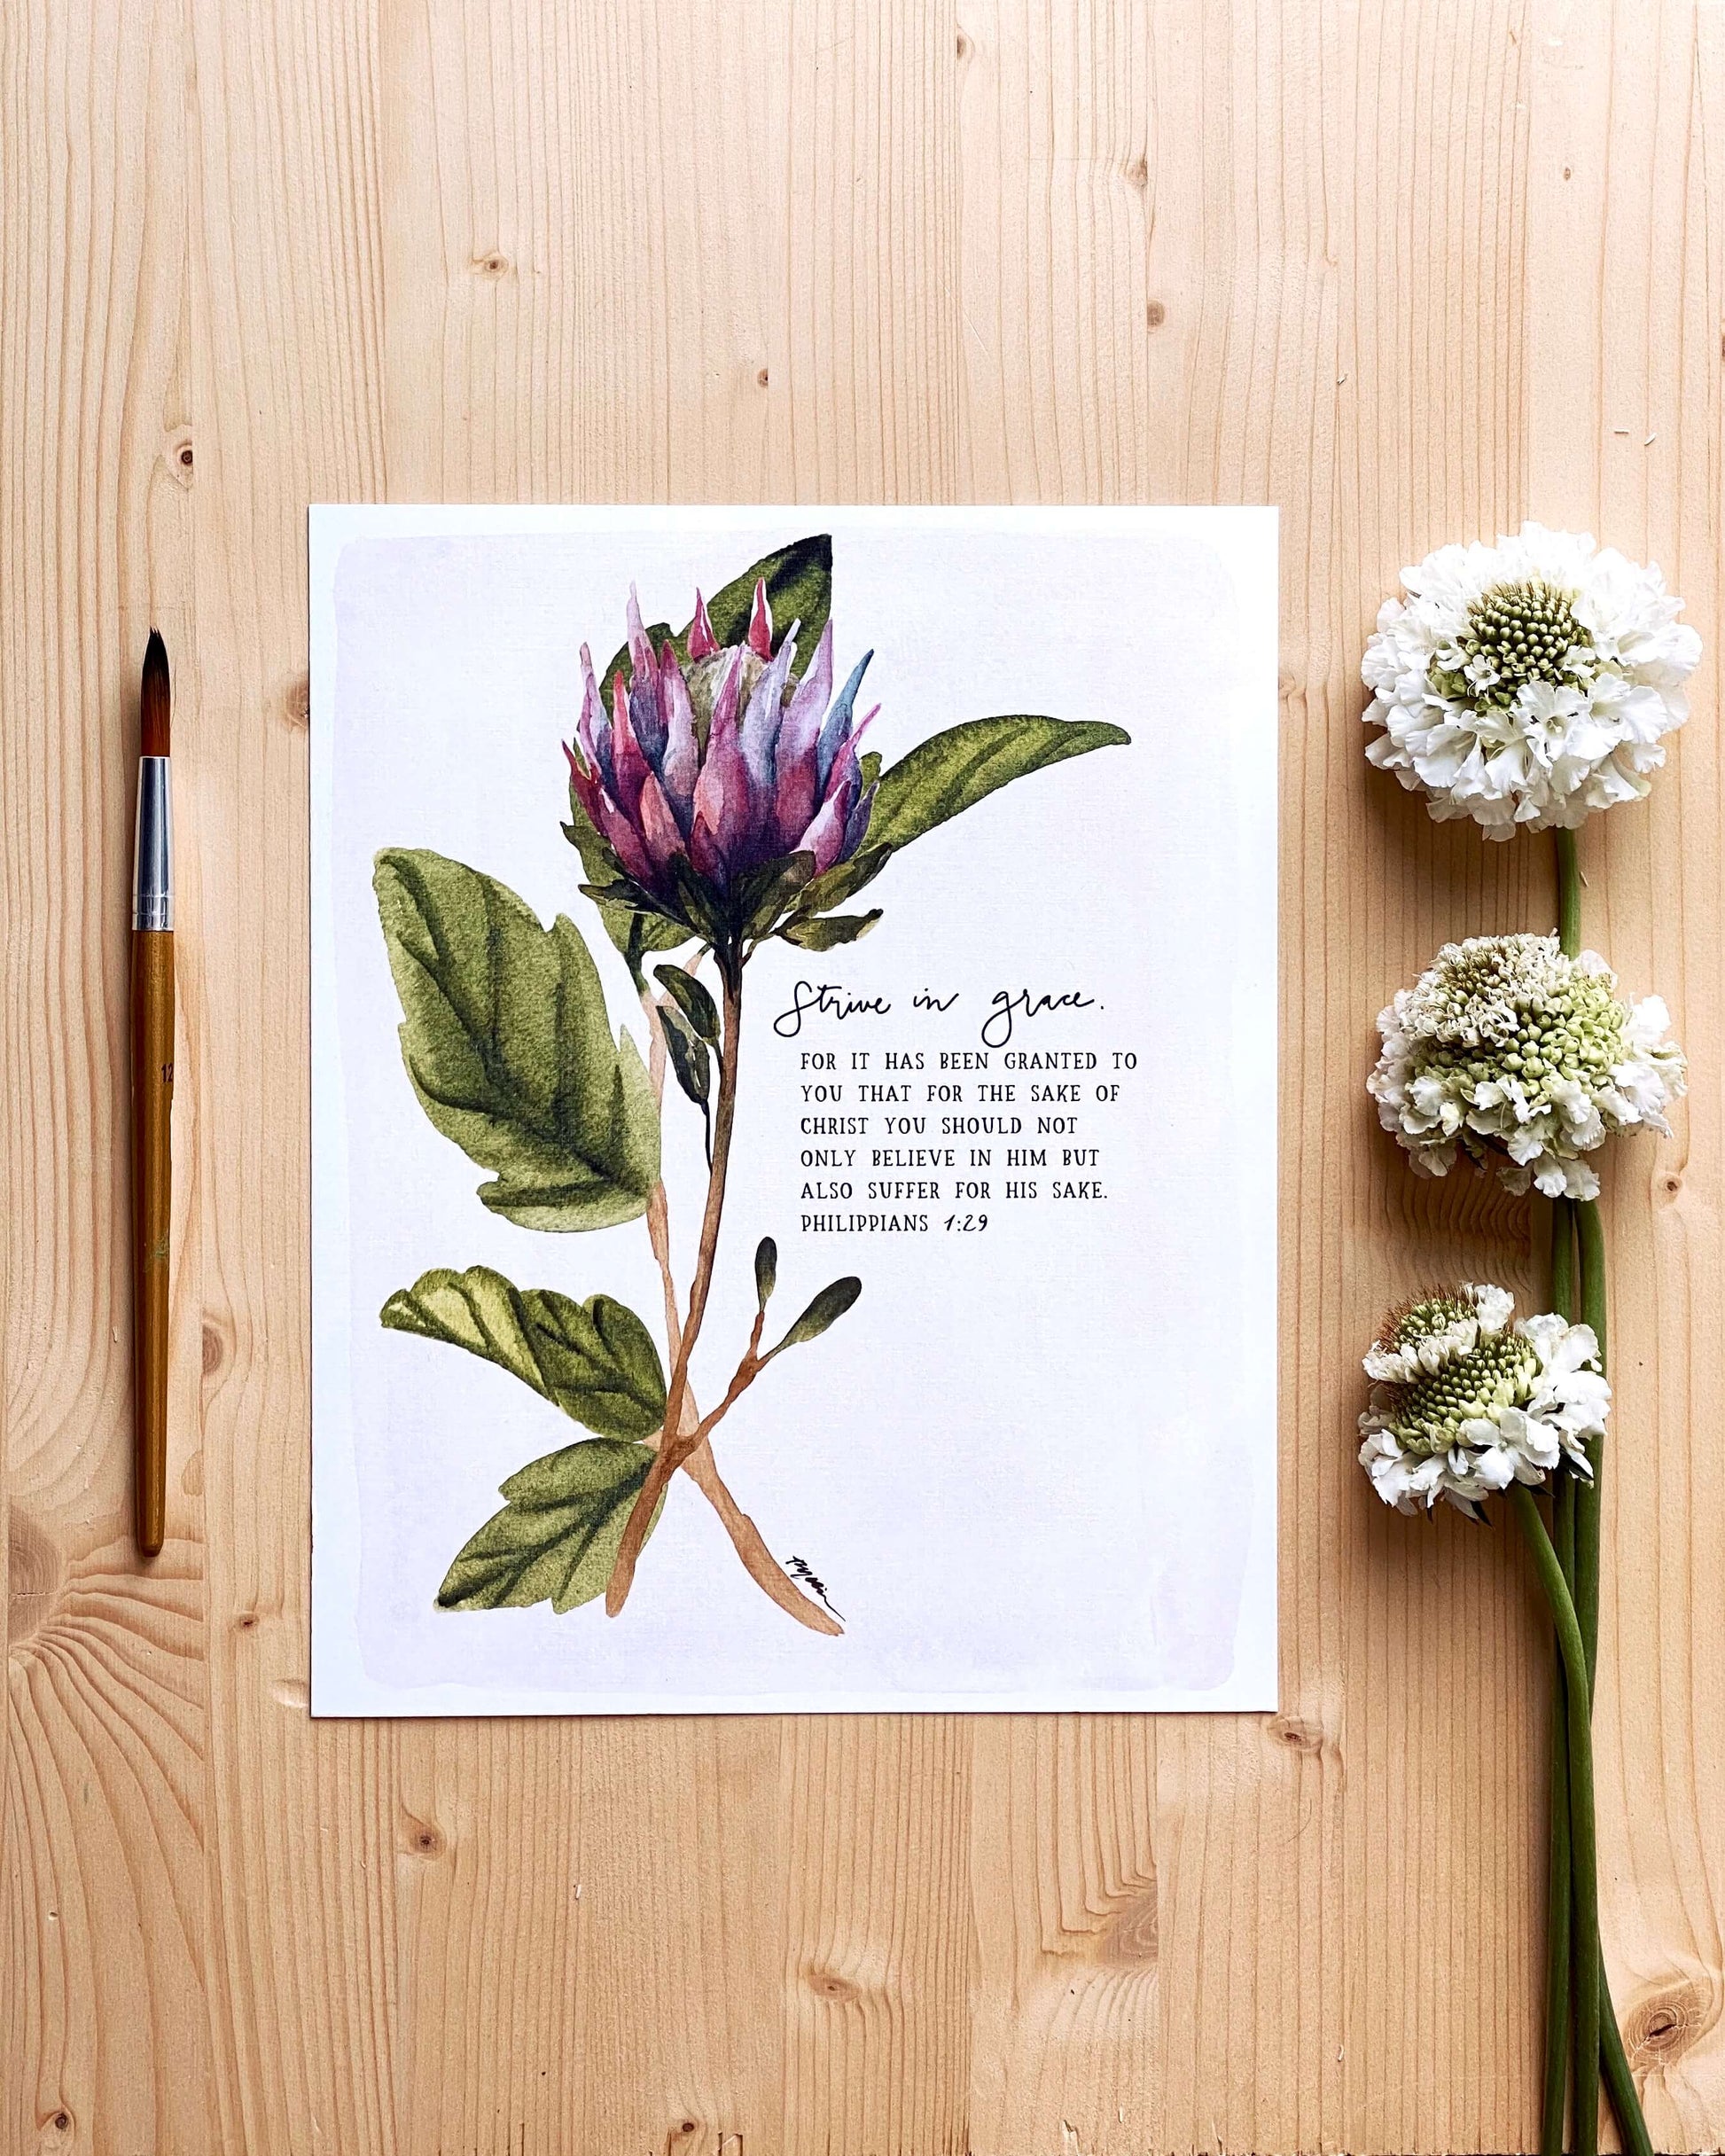 12
Strive in grace.
FOR IT HAS BEEN GRANTED TO
YOU THAT FOR THE SAKE OF
CHRIST YOU SHOULD NOT
ONLY BELIEVE IN HIM BUT
ALSO SUFFER FOR HIS SAKE.
PHILIPPIANS 1:29